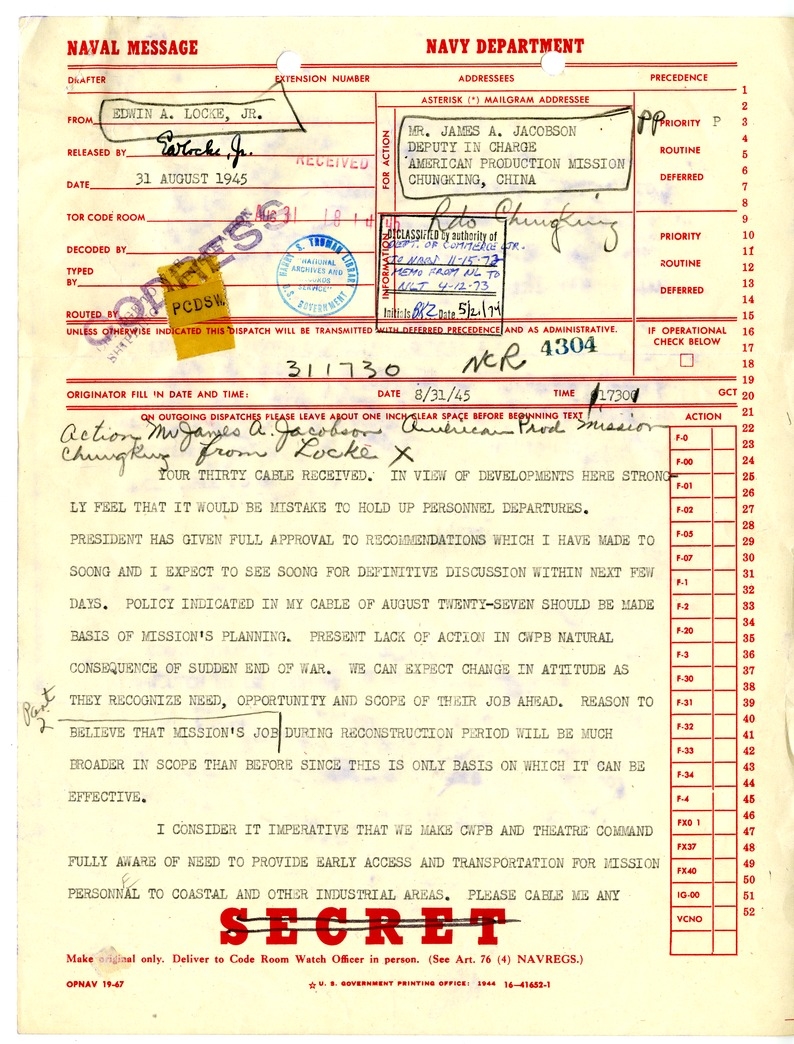 NAVAL MESSAGE NAVY DEPARTMENT
DRAFTER EXTENSION NUMBER ADDRESSEES PRECEDENCE
ASTERISK (*) MAILGRAM ADDRESSEE
FROM EDWIN A. LOCKE, JR.
RELEASED BY EALocke, Jr.
RECEIVED
DATE 31 AUGUST 1945
TOR CODE ROOM AUG 31 1814
DECODED BY
TYPED
BY
ROUTED BY
PCDSW
HARRY S. TRUMAN LIBRARY
"NATIONAL
ARCHIVES AND
RECORDS
SERVICE"
U.S. GOVERNMENT
FOR ACTION
MR. JAMES A. JACOBSON
DEPUTY IN CHARGE
AMERICAN PRODUCTION MISSION
CHUNGKING, CHINA
Rdo Chungking
INFORMATION
DECLASSIFIED by authority of
DEPT. OF COMMERCE LTR.
TO NARS 11-15-72
MEMO FROM NL TO
NLT 4-12-73
Initials Date 5/21/74
PP PRIORITY P
ROUTINE
DEFERRED
PRIORITY
ROUTINE
DEFERRED
UNLESS OTHERWISE INDICATED THIS DISPATCH WILL BE TRANSMITTED WITH DEFERRED PRECEDENCE AND AS ADMINISTRATIVE.
IF OPERATIONAL
CHECK BELOW
311730 NCR 4304
ORIGINATOR FILL IN DATE AND TIME: DATE 8/31/45 TIME 1730 GCT
ON OUTGOING DISPATCHES PLEASE LEAVE ABOUT ONE INCH CLEAR SPACE BEFORE BEGINNING TEXT
Action Mr James A. Jacobson American Prod Mission
Chungking from Locke X
YOUR THIRTY CABLE RECEIVED. IN VIEW OF DEVELOPMENTS HERE STRONG-
LY FEEL THAT IT WOULD BE MISTAKE TO HOLD UP PERSONNEL DEPARTURES.
PRESIDENT HAS GIVEN FULL APPROVAL TO RECOMMENDATIONS WHICH I HAVE MADE TO
SOONG AND I EXPECT TO SEE SOONG FOR DEFINITIVE DISCUSSION WITHIN NEXT FEW
DAYS. POLICY INDICATED IN MY CABLE OF AUGUST TWENTY-SEVEN SHOULD BE MADE
BASIS OF MISSION'S PLANNING. PRESENT LACK OF ACTION IN CWPB NATURAL
CONSEQUENCE OF SUDDEN END OF WAR. WE CAN EXPECT CHANGE IN ATTITUDE AS
THEY RECOGNIZE NEED, OPPORTUNITY AND SCOPE OF THEIR JOB AHEAD. REASON TO
Part
2
BELIEVE THAT MISSION'S JOB DURING RECONSTRUCTION PERIOD WILL BE MUCH
BROADER IN SCOPE THAN BEFORE SINCE THIS IS ONLY BASIS ON WHICH IT CAN BE
EFFECTIVE.
I CONSIDER IT IMPERATIVE THAT WE MAKE CWPB AND THEATRE COMMAND
FULLY AWARE OF NEED TO PROVIDE EARLY ACCESS AND TRANSPORTATION FOR MISSION
PERSONNAL TO COASTAL AND OTHER INDUSTRIAL AREAS. PLEASE CABLE ME ANY
ACTION
F-0
F-00
F-01
F-02
F-05
F-07
F-1
F-2
F-20
F-3
F-30
F-31
F-32
F-33
F-34
F-4
FX0 1
FX37
FX40
IG-00
VCNO
1
2
3
4
5
6
7
8
9
10
11
12
13
14
15
16
17
18
19
20
21
22
23
24
25
26
27
28
29
30
31
32
33
34
35
36
37
38
39
40
41
42
43
44
45
46
47
48
49
50
51
52
SECRET
Make original only. Deliver to Code Room Watch Officer in person. (See Art. 76 (4) NAVREGS.)
OPNAV 19-67 ☆ U. S. GOVERNMENT PRINTING OFFICE: 1944 16-41652-1